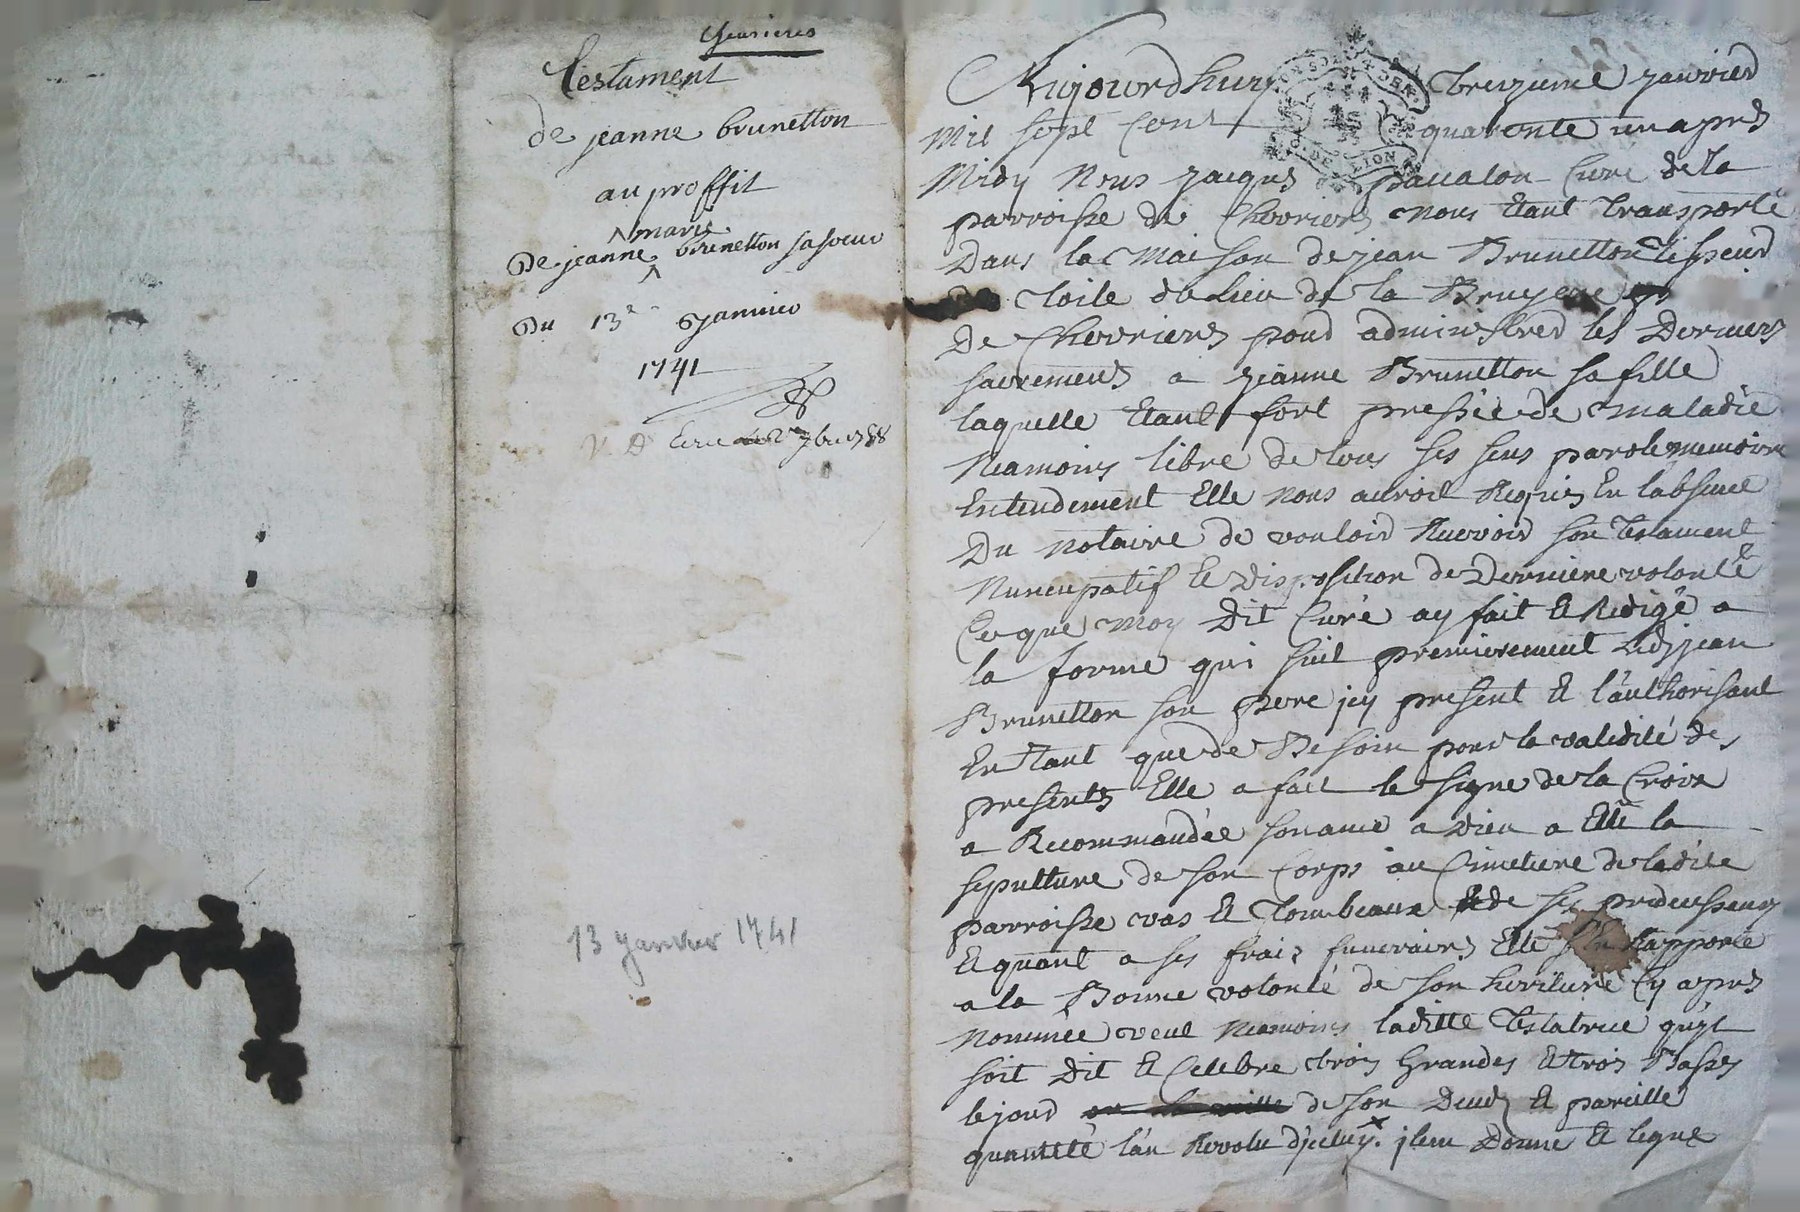 Chevrieres
Testament
de jeanne brunetton
au proffit
marie
De jeanne brunetton sa soeur
Du 13e janvier
1741
13 janvier 1741
Aujourdhuy treizieme janvier
mil sept cent quarante un apres
midy Nous jacques pavalon Curé de la
parroisse de Chevriers nous Etant transporté
Dans la maison de jean Brunetton tisseur
De toile du lieu de la Bruyere
De Chevriers pour administrer les Derniers
sacremens a jeanne Brunetton sa fille
laquelle Etant fort pressée de maladie
Neamoins libre de tous ses sens parole memoire
Entendement Elle nous auroit Requis En labsence
Du notaire de vouloir Recevoir son testament
Nuncupatif Et Disposition de Derniere volonté
Ce que moy Dit Curé ay fait Et Redigé a
la forme qui suit premierement Ledt jean
Brunetton son pere jcy present Et l'authorisant
En tant que de Besoin pour la validité des
presents Elle a fait le signe de la Croix
a Recommandée son ame a Dieu a Elû la
sepulture de son Corps au Cimetiere de ladite
parroisse vas Et tombeaux de ses predecesseurs
Et quant a ses frais funeraires Elle s'en Rapporte
a la Bonne volonté de son heritiere Cy apres
Nommée veut Neamoins laditte testatrice qu'jl
soit Dit Et Celebré trois Grandes Et trois Basses
le jour de son Deces Et pareille
quantité l'an Revolu D'jceluy. jtem Donne Et legue